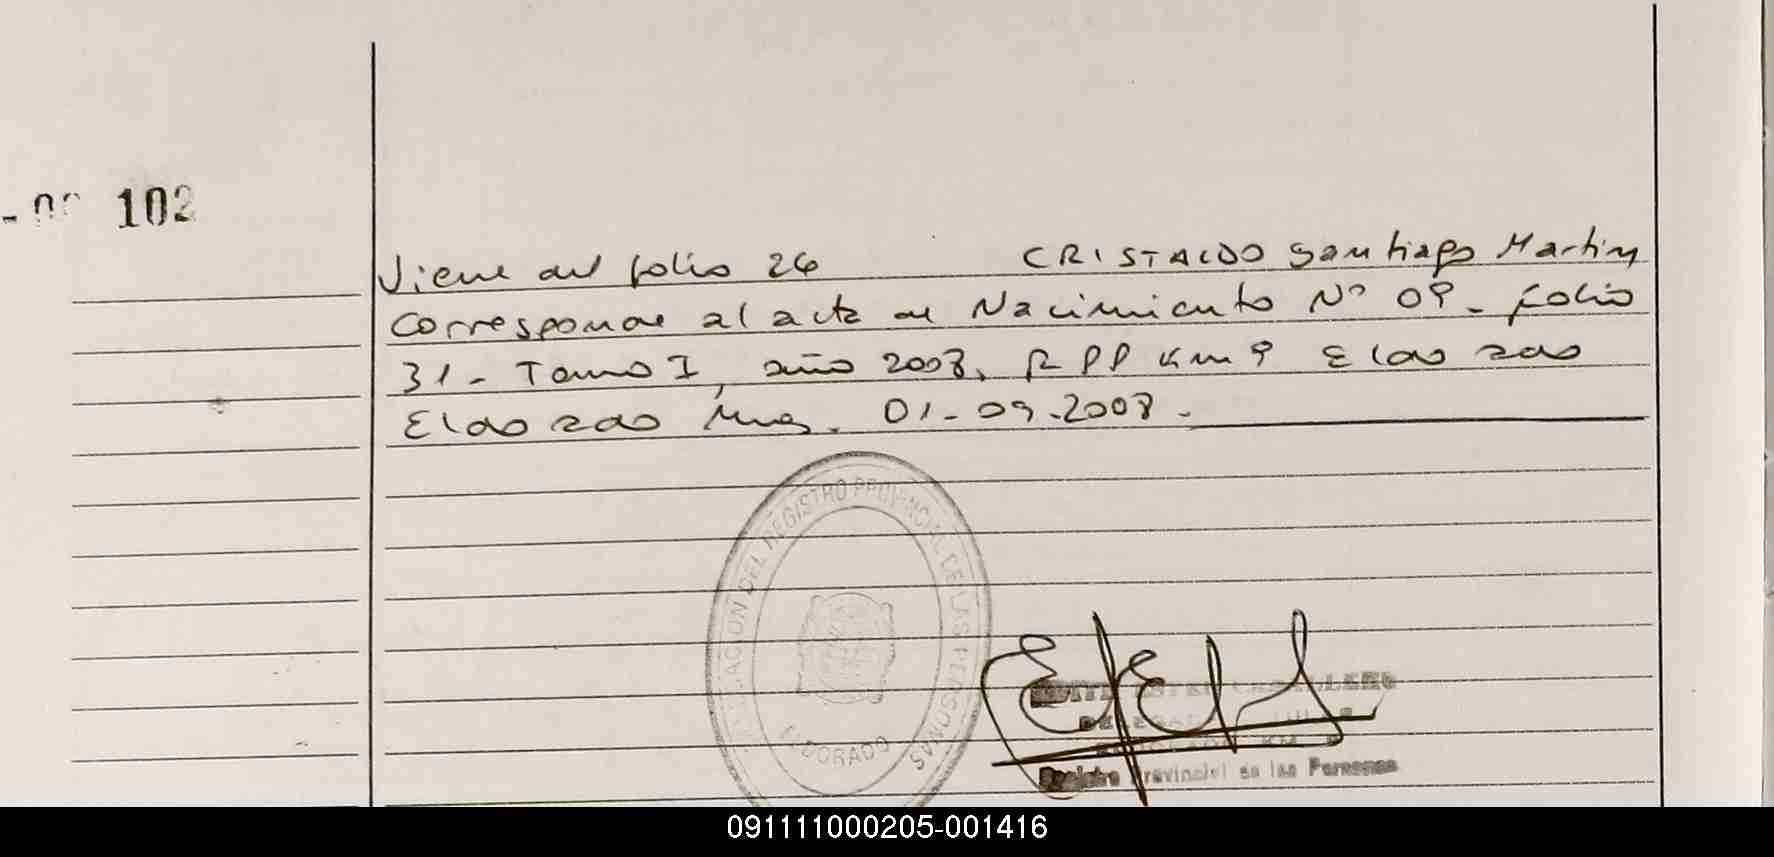 102
Viene del folio 26 CRISTALDO Santiago Martin
Corresponde al acta de Nacimiento Nº 09. folio
31 - Tomo I, año 2008, RPP Km 9 Eldorado
Eldorado Mnes. 01-09-2008.
DEL REGISTRO PROVINCIAL DE LAS PERSONAS
ELDORADO
Registro Provincial de las Personas
091111000205-001416